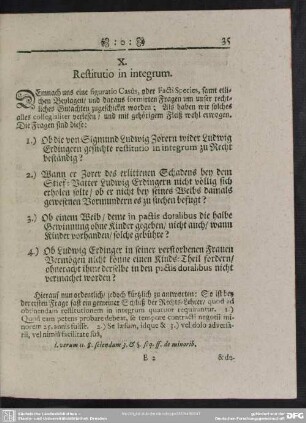 35
X.
Restitutio in integrum.
Demnach uns eine figuratio Casûs, oder Facti Species, samt etli-
chen Beylagen / und daraus formirten Fragen um unser recht-
liches Gutachten zugeschickt worden; Als haben wir solches
alles collegialiter verlesen / und mit gehörigem Fleiß wohl erwogen.
Die Fragen sind diese:
1.) Ob die von Sigmund Ludwig Zorern wider Ludwig
Erdingern gesuchte restitutio in integrum zu Recht
beständig?
2.) Wann er Zorer des erlittenen Schadens bey dem
Stief-Vatter Ludwig Erdingern nicht völlig sich
erholen solte / ob er nicht bey seines Weibs damals
gewesenen Vormündern es zu suchen befugt?
3.) Ob einem Weib / deme in pactis dotalibus die halbe
Gewinnung ohne Kinder gegeben / nicht auch / wann
Kinder vorhanden / solche gebühre?
4.) Ob Ludwig Erdinger in seiner verstorbenen Frauen
Vermögen nicht könne einen Kinds-Theil fordern /
ohneracht ihme derselbe in den pactis dotalibus nicht
vermachet worden?
Hierauf nun ordentlich / jedoch kürtzlich zu antworten: So ist bey
der ersten Frage fast ein gemeiner Schluß der Rechts-Lehrer / quod ad
obtinendam restitutionem in integrum quatuor requirantur. 1.)
Quod eam petens probare debeat, se tempore contracti negotii mi-
norem 25. annis fuisse. 2.) Se læsum, idque & 3.) vel dolo adversa-
rii, vel nimiâ facilitate suâ,
l. verum 11. §. sciendum 3. & §. seq. ff. de minorib.
E 2
& do-